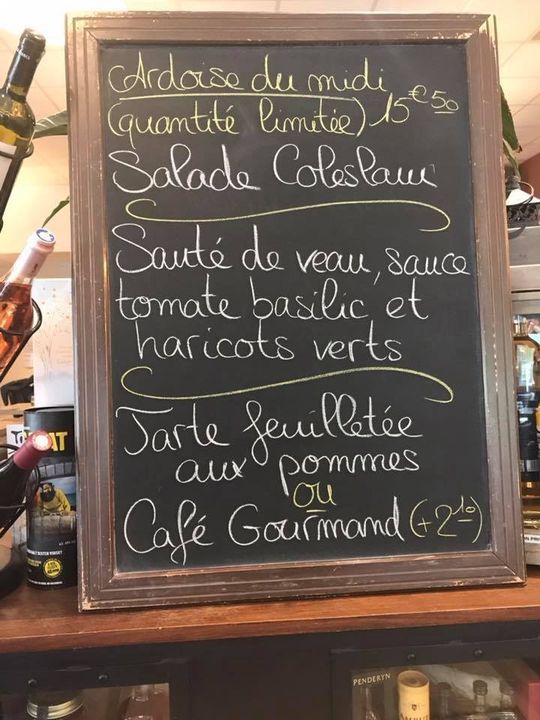 Ardoise du midi
(quantité limitée) 15€50
Salade Coleslaw
Sauté de veau, sauce
tomate basilic et
haricots verts
Tarte feuilletée
aux pommes
ou
Café Gourmand (+2€10)
PENDERYN